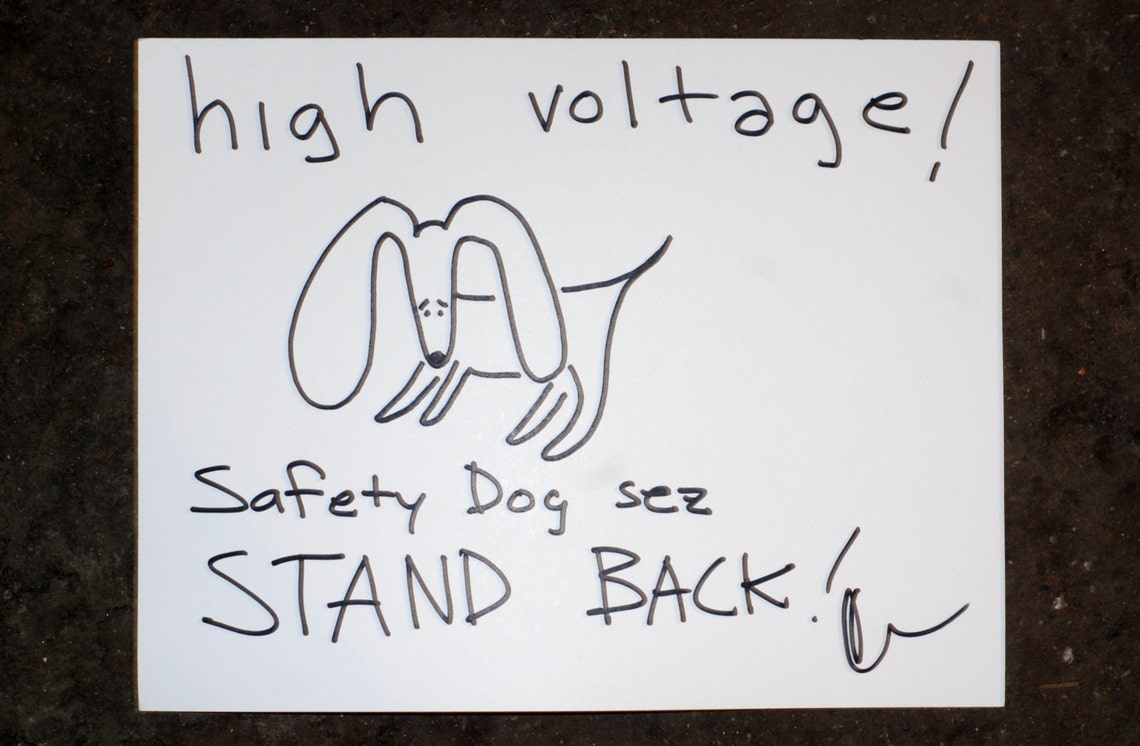 high voltage!
Safety Dog sez
STAND BACK!